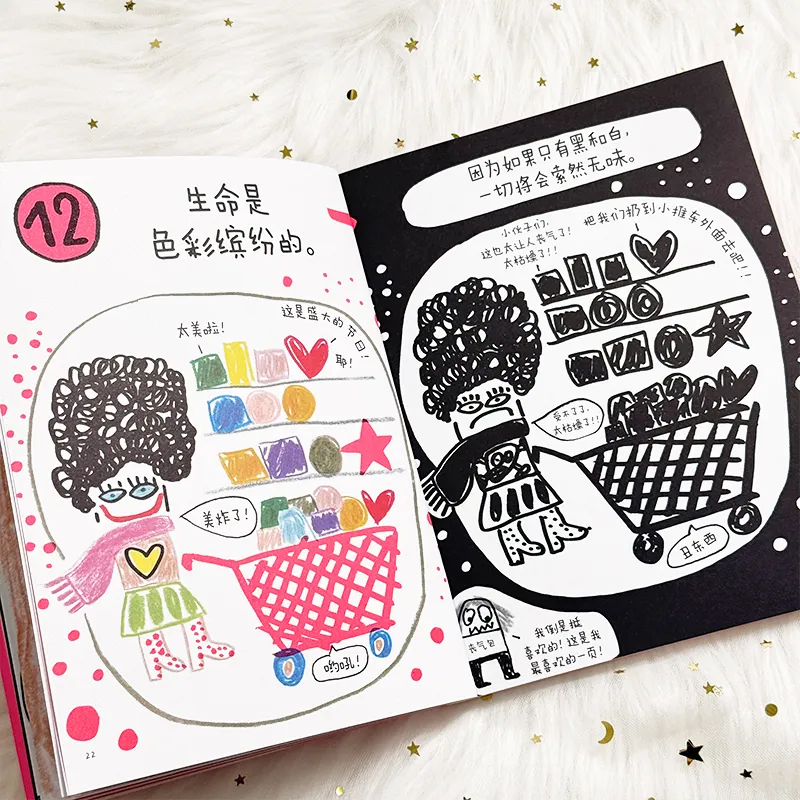 12
生命是
色彩缤纷的。
太美啦！
这是盛大的节日！
耶！
美炸了！
哟吼！
22
因为如果只有黑和白，
一切将会索然无味。
小伙子们，
这也太让人丧气了！
太枯燥了！！
把我们扔到小推车外面去吧！！
受不了了，
太枯燥了！！
丑东西
丧气包
我倒是挺
喜欢的！这是我
最喜欢的一页！